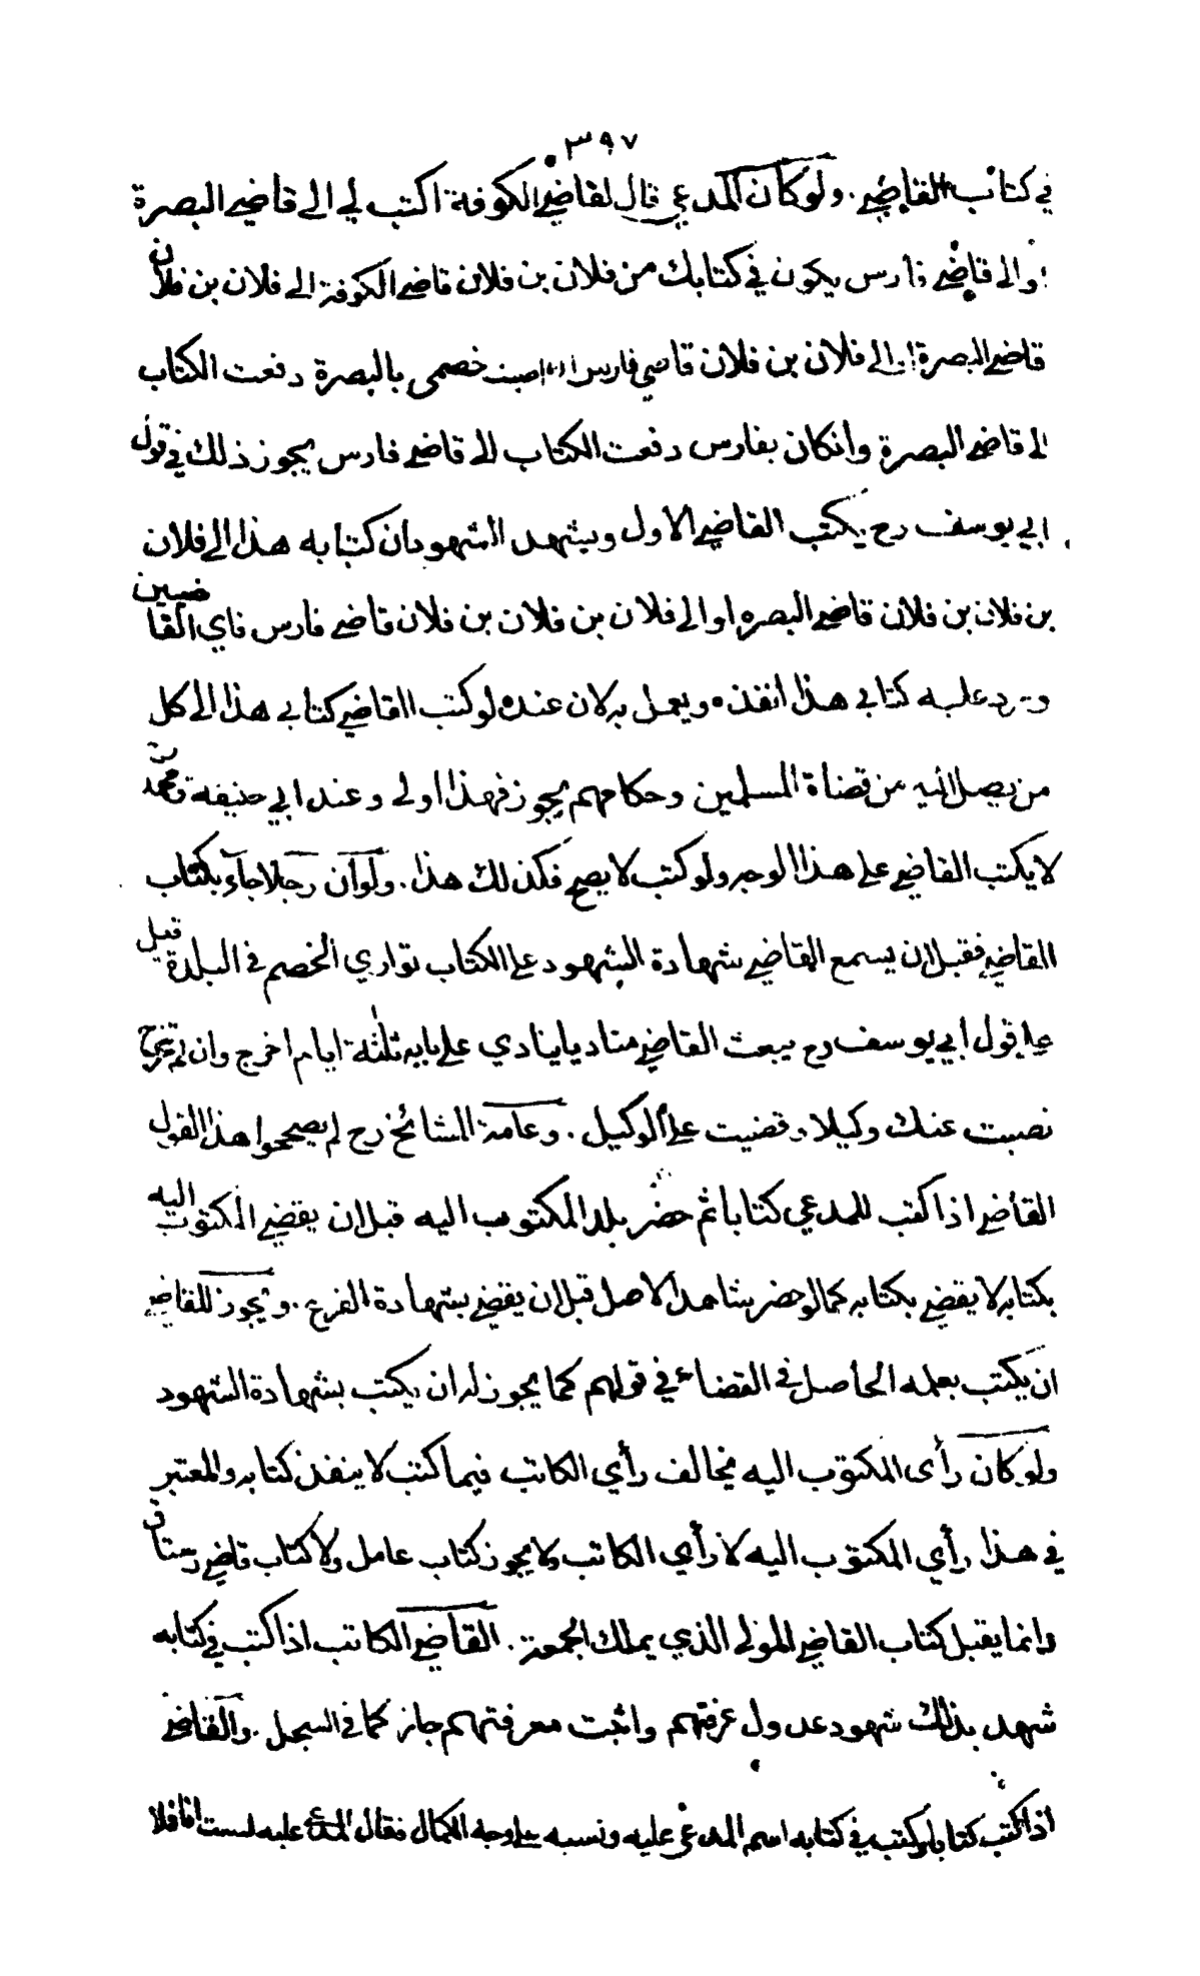 ٣٩٧
في كتاب القاضي. ولو كان المدعي قال لقاضي الكوفة اكتب لي الى قاضي البصرة
او الى قاضي فارس يكون في كتابك من فلان بن فلان قاضي الكوفة الى فلان بن فلان
قاضي البصرة او الى فلان بن فلان قاضي فارس اصبت خصمي بالبصرة دفعت الكتاب
الى قاضي البصرة وانكان بفارس دفعت الكتاب الى قاضي فارس يجوز ذلك في قول
ابي يوسف رح يكتب القاضي الاول ويشهد الشهود ان كتابه هذا الى فلان
بن فلان بن فلان قاضي البصره او الى فلان بن فلان بن فلان قاضي فارس فاي القاضيين
ورد عليه كتابي هذا انفذه ويعمل به لان عنده لو كتب القاضي كتابي هذا الى كل
من يصل اليه من قضاة المسلمين وحكامهم يجوز فهذا اولى وعند ابي حنيفة ومحمد رح
لا يكتب القاضي على هذا الوجه ولو كتب لا يصح فكذلك هذا. ولو ان رجلا جاء بكتاب
القاضي فقبل ان يسمع القاضي شهادة الشهود على الكتاب توارى الخصم في البلدة قيل
على قول ابي يوسف رح يبعث القاضي مناديا ينادي على بابه ثلثة ايام اخرج وان لم تخرج
نصبت عنك وكيلا وقضيت على الوكيل. وعامة المشائخ رح لم يصححوا هذا القول
القاضي اذا كتب للمدعي كتابا ثم حضر بلد المكتوب اليه قبل ان يقضي المكتوب اليه
بكتابه لا يقضي بكتابه كما لو حضر شاهد الاصل قبل ان يقضي بشهادة الفرع. ويجوز للقاضي
ان يكتب بعلمه الحاصل في القضاء في قولهم كما يجوز له ان يكتب بشهادة الشهود
ولو كان رأى المكتوب اليه مخالف رأي الكاتب فيما كتب لا ينفذ كتابه والمعتبر
في هذا رأي المكتوب اليه لا رأي الكاتب ولا يجوز كتاب عامل ولا كتاب قاضي رستاق
وانما يقبل كتاب القاضي المولى الذي يملك الجمعة. القاضي الكاتب اذا كتب في كتابه
شهد بذلك شهود عدول عرفتهم واثبت معرفتهم جاز كما في السجل. والقاضي
اذا كتب كتابا وكتب في كتابه اسم المدعى عليه ونسبه على وجه الكمال فقال المدعى عليه لست انا فلا